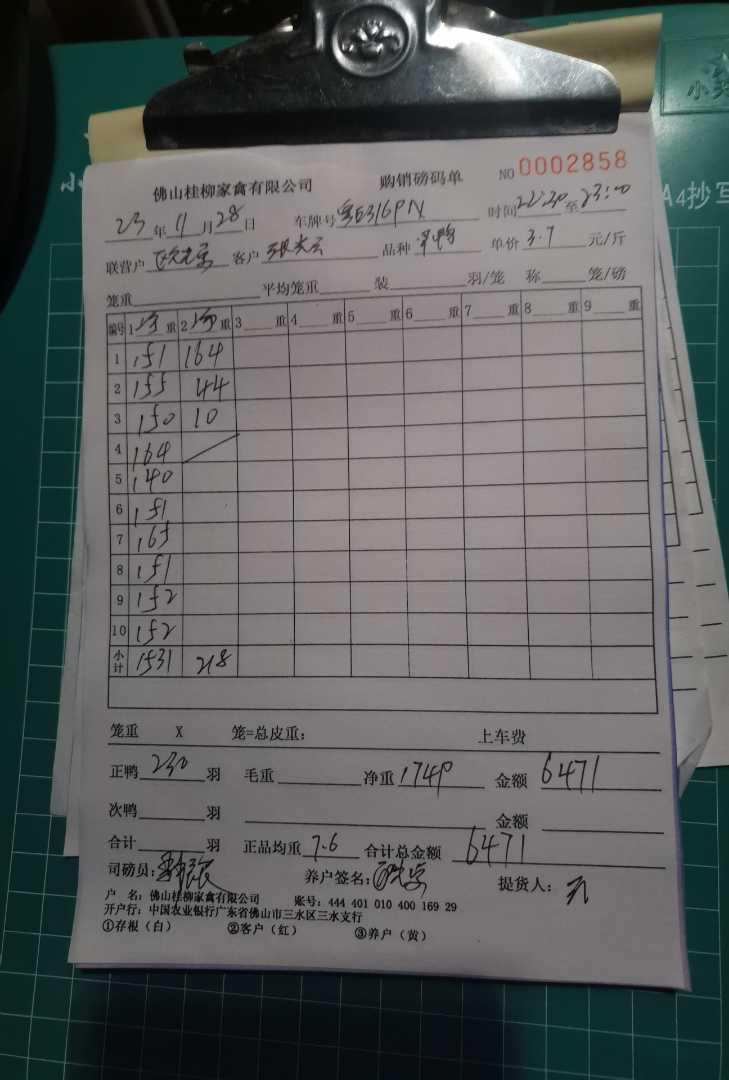 佛山桂柳家禽有限公司 购销磅码单 NO 0002858
23年11月28日 车牌号 E316PN 时间22:30至23:00
联营户 客户 品种 单价 3.7 元/斤
笼重 平均笼重 装 羽/笼 称 笼/磅
编号 1 重 2 重 3 重 4 重 5 重 6 重 7 重 8 重 9 重
1 151 164
2 155 44
3 150 10
4 164
5 140
6 151
7 165
8 151
9 152
10 152
小计 1531 218
笼重 X 笼=总皮重: 上车费
正鸭 230 羽 毛重 净重 1749 金额 6471
次鸭 羽 金额
合计 羽 正品均重 7.6 合计总金额 6471
司磅员: 养户签名: 提货人:
户 名: 佛山桂柳家禽有限公司 账号: 444 401 010 400 169 29
开户行: 中国农业银行广东省佛山市三水区三水支行
①存根（白） ②客户（红） ③养户（黄）
A4抄写